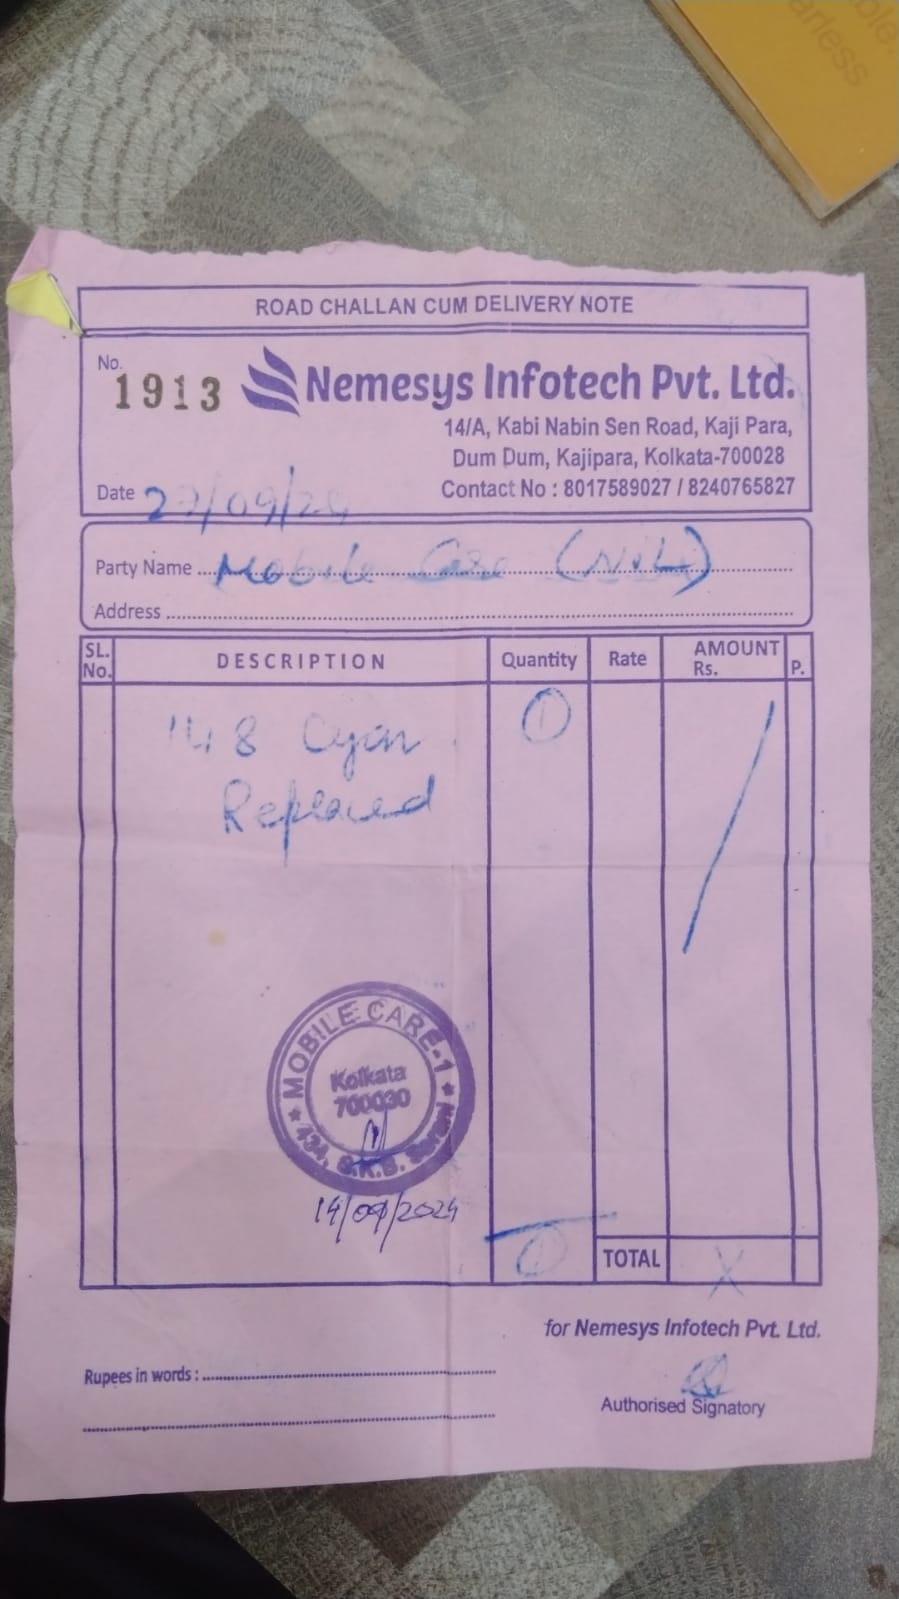 ROAD CHALLAN CUM DELIVERY NOTE
No.
1913
Nemesys Infotech Pvt. Ltd.
14/A, Kabi Nabin Sen Road, Kaji Para,
Dum Dum, Kajipara, Kolkata-700028
Contact No : 8017589027 / 8240765827
Date 27/09/24
Party Name Mobile Care
Address
SL. No. DESCRIPTION Quantity Rate AMOUNT Rs. P.
148 Cyan 1
Replaced
MOBILE CARE-1
Kolkata
700030
434, S.K.B. Sarani
14/09/2024
1 TOTAL X
for Nemesys Infotech Pvt. Ltd.
Rupees in words :
Authorised Signatory